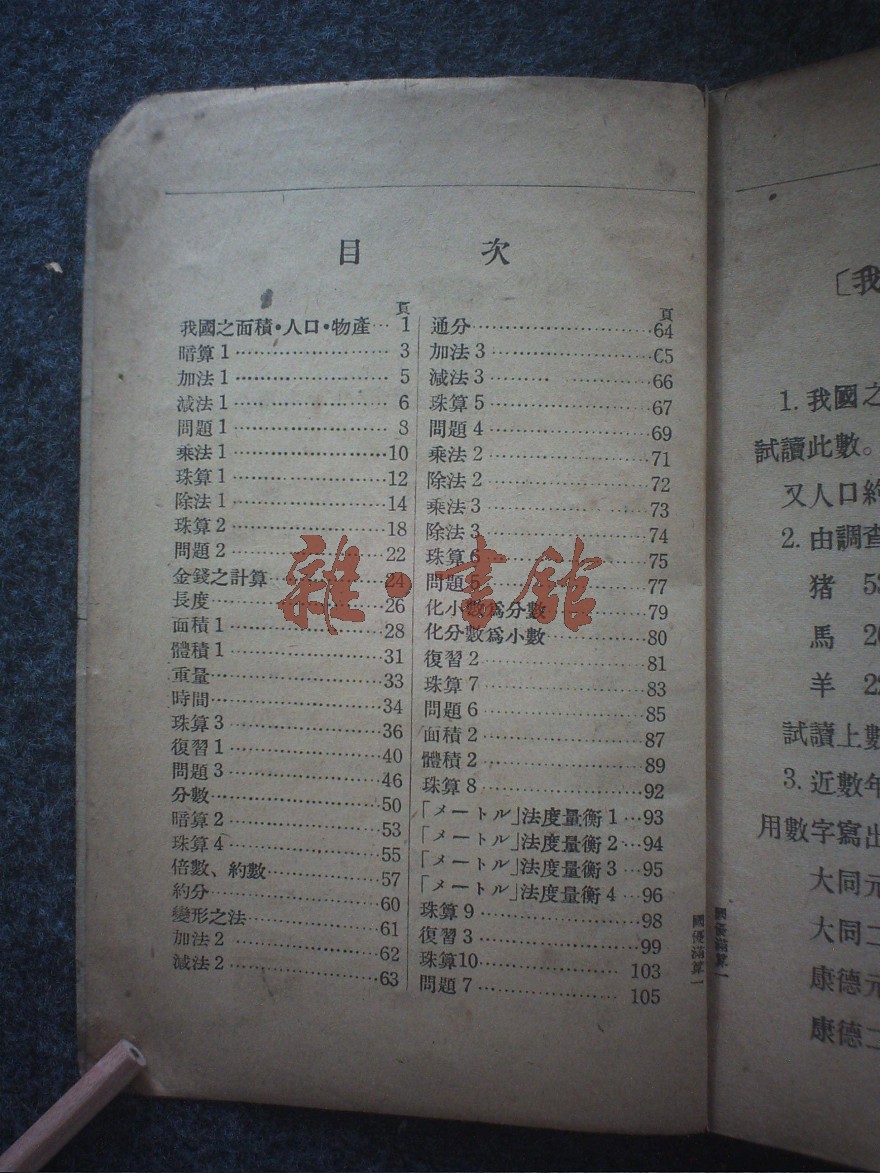 目 次
頁
我國之面積・人口・物產…1
暗算1…3
加法1…5
減法1…6
問題1…8
乘法1…10
珠算1…12
除法1…14
珠算2…18
問題2…22
金錢之計算…24
長度…26
面積1…28
體積1…31
重量…33
時間…34
珠算3…36
復習1…40
問題3…46
分數…50
暗算2…53
珠算4…55
倍數、約數…57
約分…60
變形之法…61
加法2…62
減法2…63
頁
通分…64
加法3…65
減法3…66
珠算5…67
問題4…69
乘法2…71
除法2…72
乘法3…73
除法3…74
珠算6…75
問題5…77
化小數爲分數…79
化分數爲小數…80
復習2…81
珠算7…83
問題6…85
面積2…87
體積2…89
珠算8…92
「メートル」法度量衡1…93
「メートル」法度量衡2…94
「メートル」法度量衡3…95
「メートル」法度量衡4…96
珠算9…98
復習3…99
珠算10…103
問題7…105
國優滿算一
國優滿算一
〔我
1. 我國之
試讀此數。
又人口約
2. 由調查
猪 53
馬 20
羊 22
試讀上數
3. 近數年
用數字寫出
大同元
大同二
康德元
康德二
雜・書館